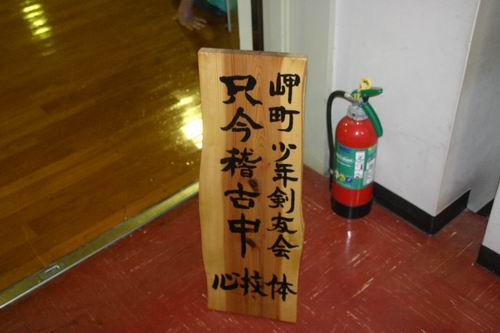 岬町 少年剣友会
只今稽古中
心技体